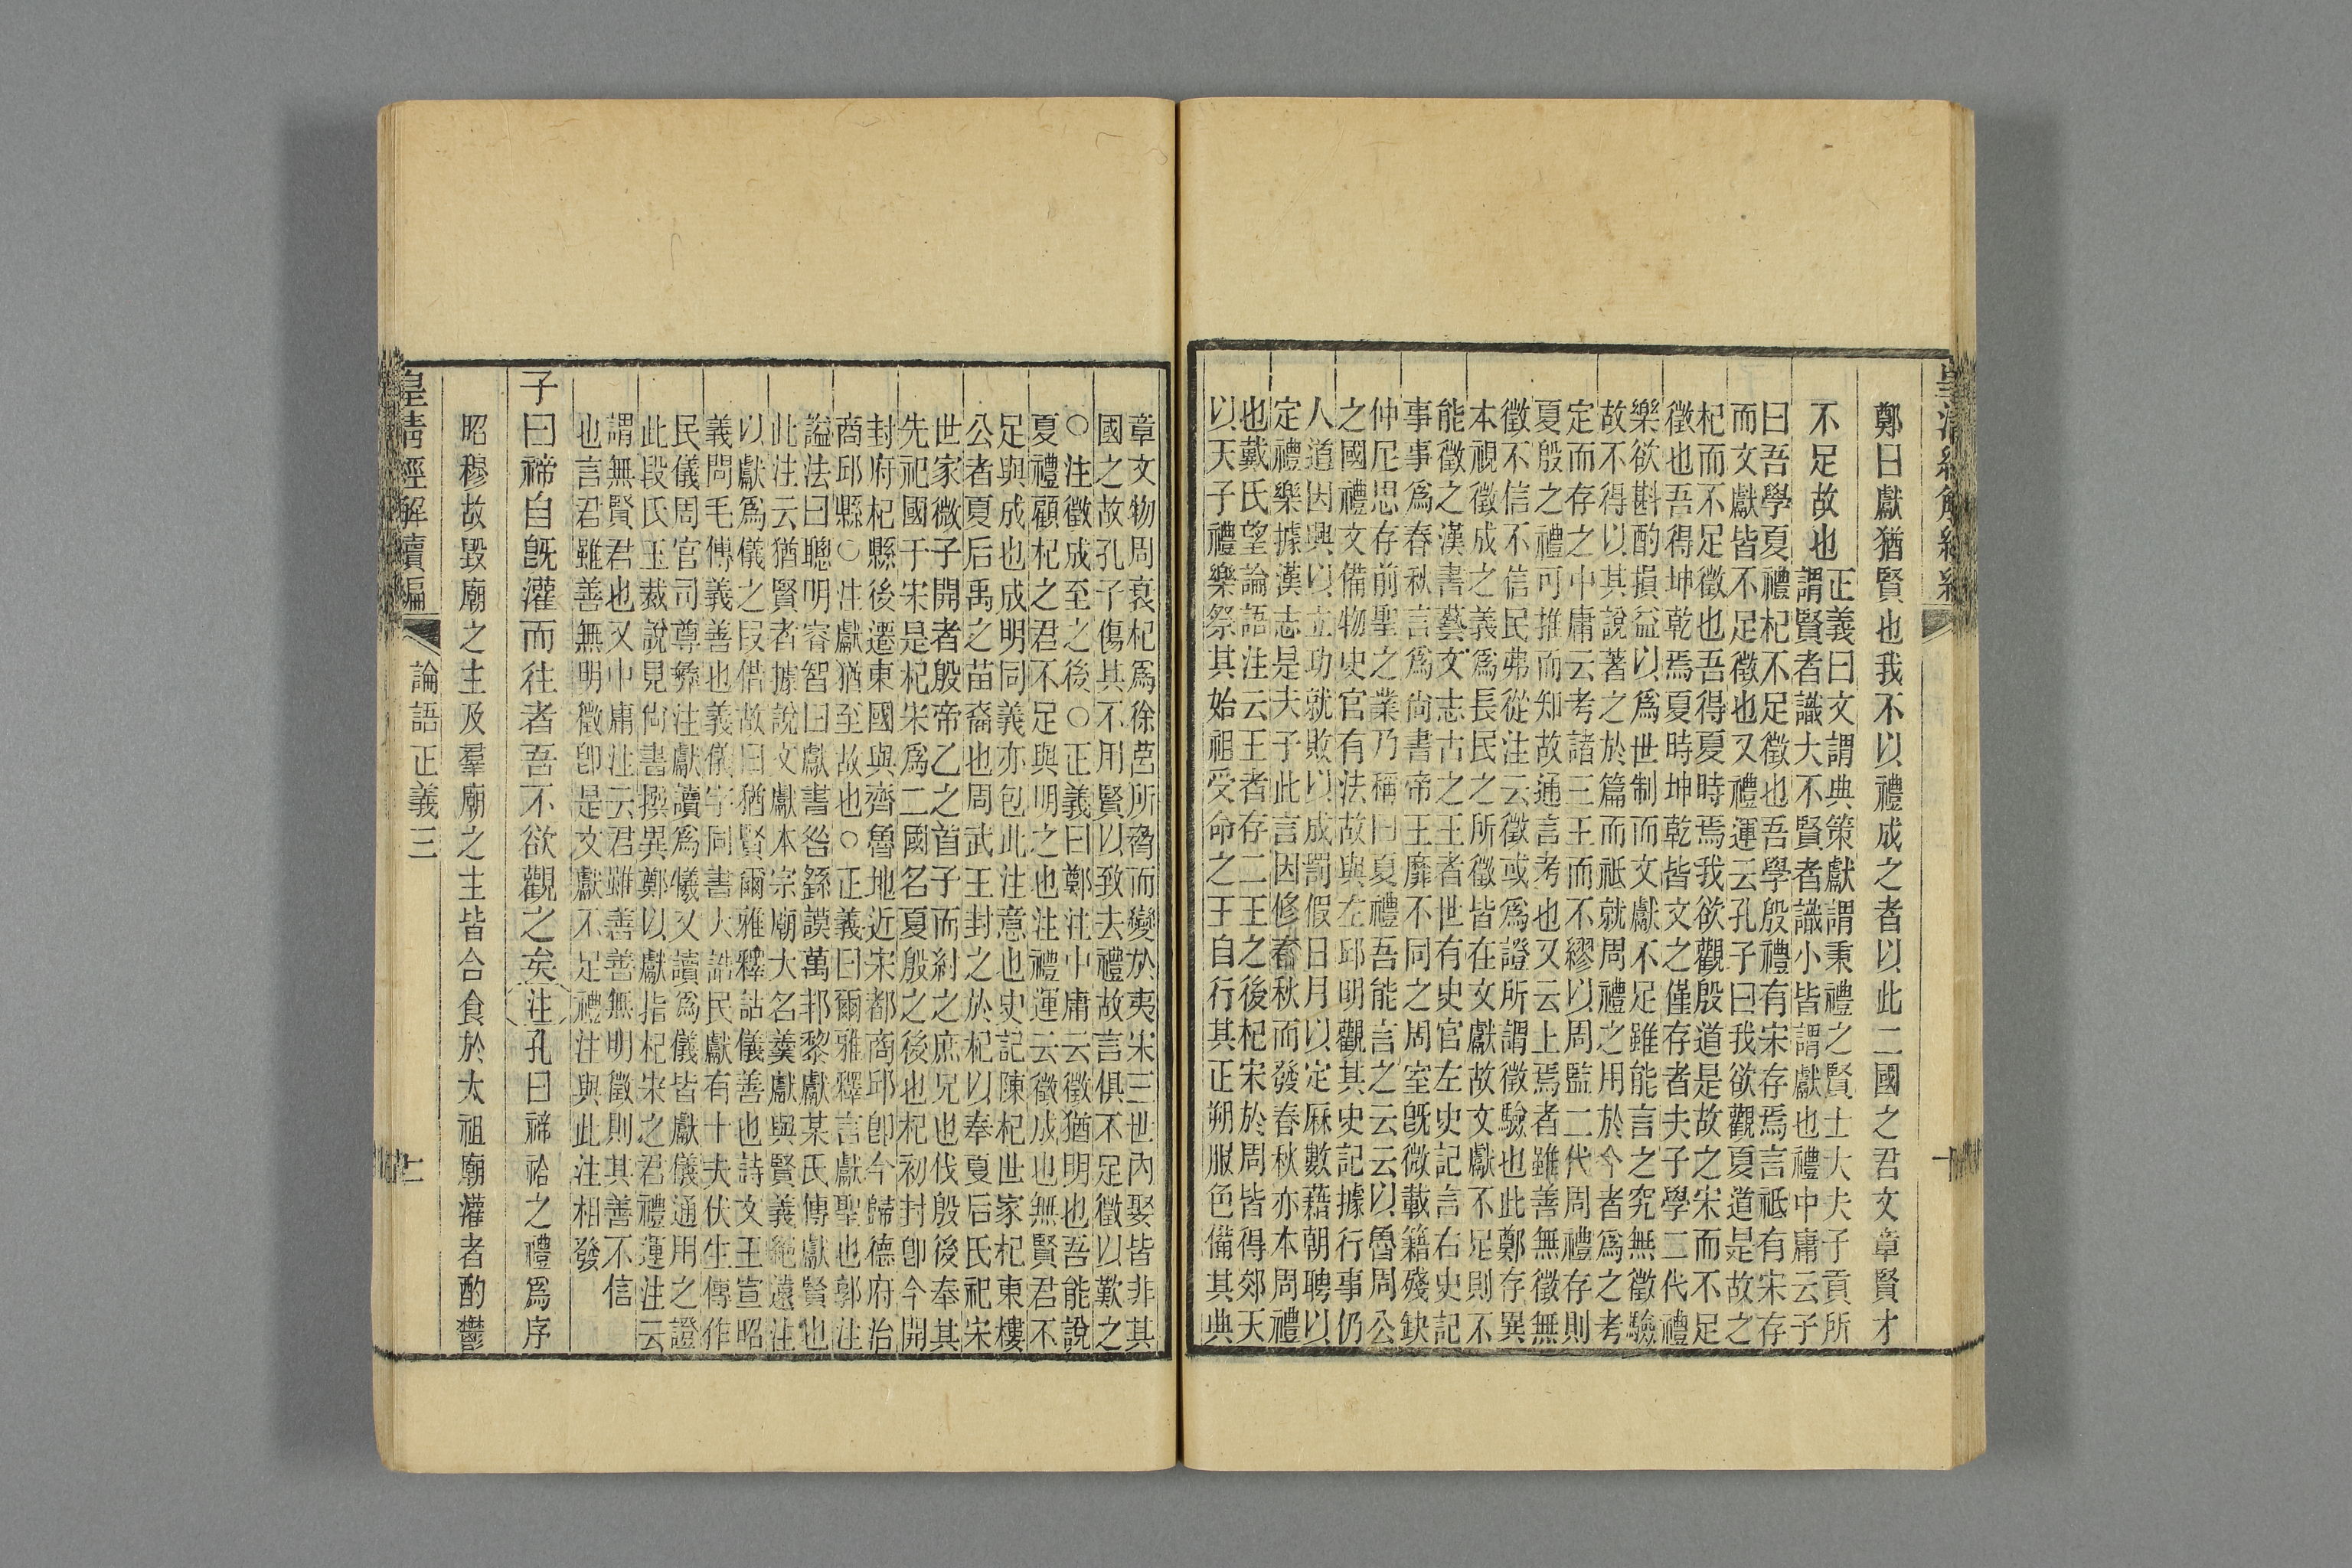 鄭曰獻猶賢也我不以禮成之者以此二國之君文章賢才
不足故也
正義曰文謂典策獻謂秉禮之賢士大夫子貢所
謂賢者識大不賢者識小皆謂獻也禮中庸云子
曰吾學夏禮杞不足徵也吾學殷禮有宋存焉言祗有宋存
而文獻皆不足徵也又禮運云孔子曰我欲觀夏道是故之
杞而不足徵也吾得夏時焉我欲觀殷道是故之宋而不足
徵也吾得坤乾焉夏時坤乾皆文之僅存者夫子學二代禮
樂欲斟酌損益以爲世制而文獻不足雖能言之究無徵驗
故不得以其說著之於篇而祗就周禮之用於今者爲之考
定而存之中庸云考諸三王而不繆以周監二代周禮存則
夏殷之禮可推而知故通言考也又云上焉者雖善無徵無
徵不信不信民弗從注云徵或爲證所謂徵驗也此鄭存異
本視徵成之義爲長民之所徵皆在文獻故文獻不足則不
能徵之漢書藝文志古之王者世有史官左史記言右史記
事事爲春秋言爲尚書帝王靡不同之周室旣微載籍殘缺
仲尼思存前聖之業乃稱曰夏禮吾能言之云云以魯周公
之國禮文備物史官有法故與左邱明觀其史記據行事仍
人道因興以立功就敗以成罰假日月以定厤數藉朝聘以
定禮樂據漢志是夫子此言因修春秋而發春秋亦本周禮
也戴氏望論語注云王者存二王之後杞宋於周皆得郊天
以天子禮樂祭其始祖受命之王自行其正朔服色備其典
章文物周衰杞爲徐莒所脅而變於夷宋三世內娶皆非其
國之故孔子傷其不用賢以致夫禮故言俱不足徵以歎之
○注徵成至之後○正義曰鄭注中庸云徵猶明也吾能說
夏禮顧杞之君不足與明之也注禮運云徵成也無賢君不
足與成也成明同義亦包此注意也史記陳杞世家杞東樓
公者夏后禹之苗裔也周武王封之於杞以奉夏后氏祀宋
世家微子開者殷帝乙之首子而紂之庶兄也伐殷後奉其
先祀國于宋是杞宋爲二國名夏殷之後也杞初封卽今開
封府杞縣後遷東國與齊魯地近宋都商邱卽今歸德府治
商邱縣○注獻猶至故也○正義曰爾雅釋言獻聖也郭注
謚法曰聰明睿智曰獻書咎繇謨萬邦黎獻某氏傳獻賢也
此注云猶賢者據說文獻本宗廟犬名羹獻與賢義絕遠注
以獻爲儀之叚借故曰猶賢爾雅釋詁儀善也詩文王宣昭
義問毛傳義善也義儀字同書大誥民獻有十夫伏生傳作
民儀周官司尊彝注獻讀爲犧又讀爲儀皆獻儀通用之證
此段氏玉裁說見尚書撰異鄭以獻指杞宋之君禮運注云
謂無賢君也又中庸注云君雖善善無明徵則其善不信
也言君雖善無明徵卽是文獻不足禮注與此注相發
子曰禘自旣灌而往者吾不欲觀之矣注孔曰禘祫之禮爲序
昭穆故毀廟之主及羣廟之主皆合食於大祖廟灌者酌鬱
皇清經解續編 論語正義三